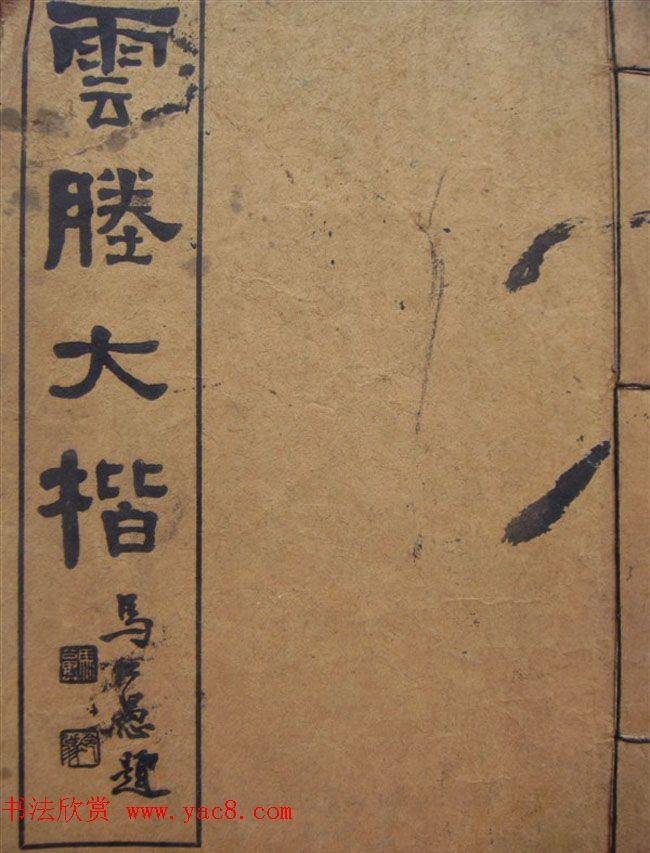 雲塍大楷
馬公愚題
书法欣赏 www.yac8.com